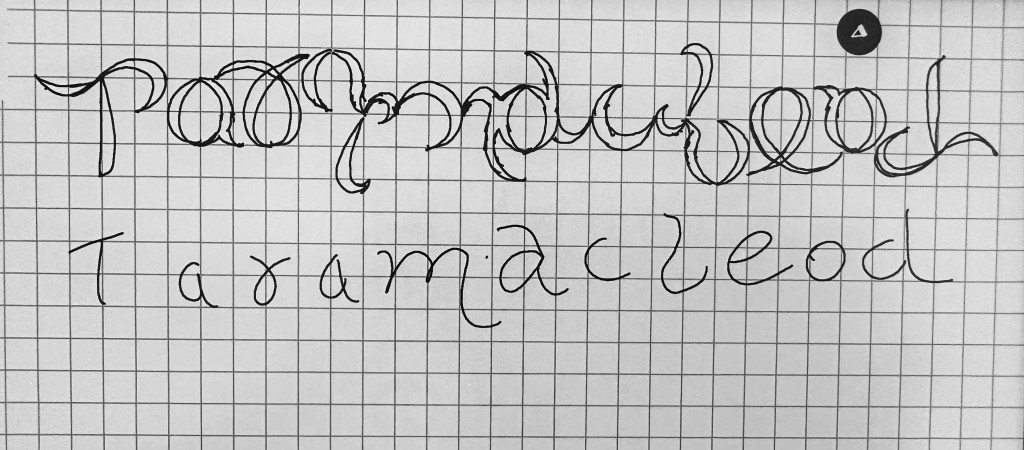 Taramacleod
T a r a m a c l e o d